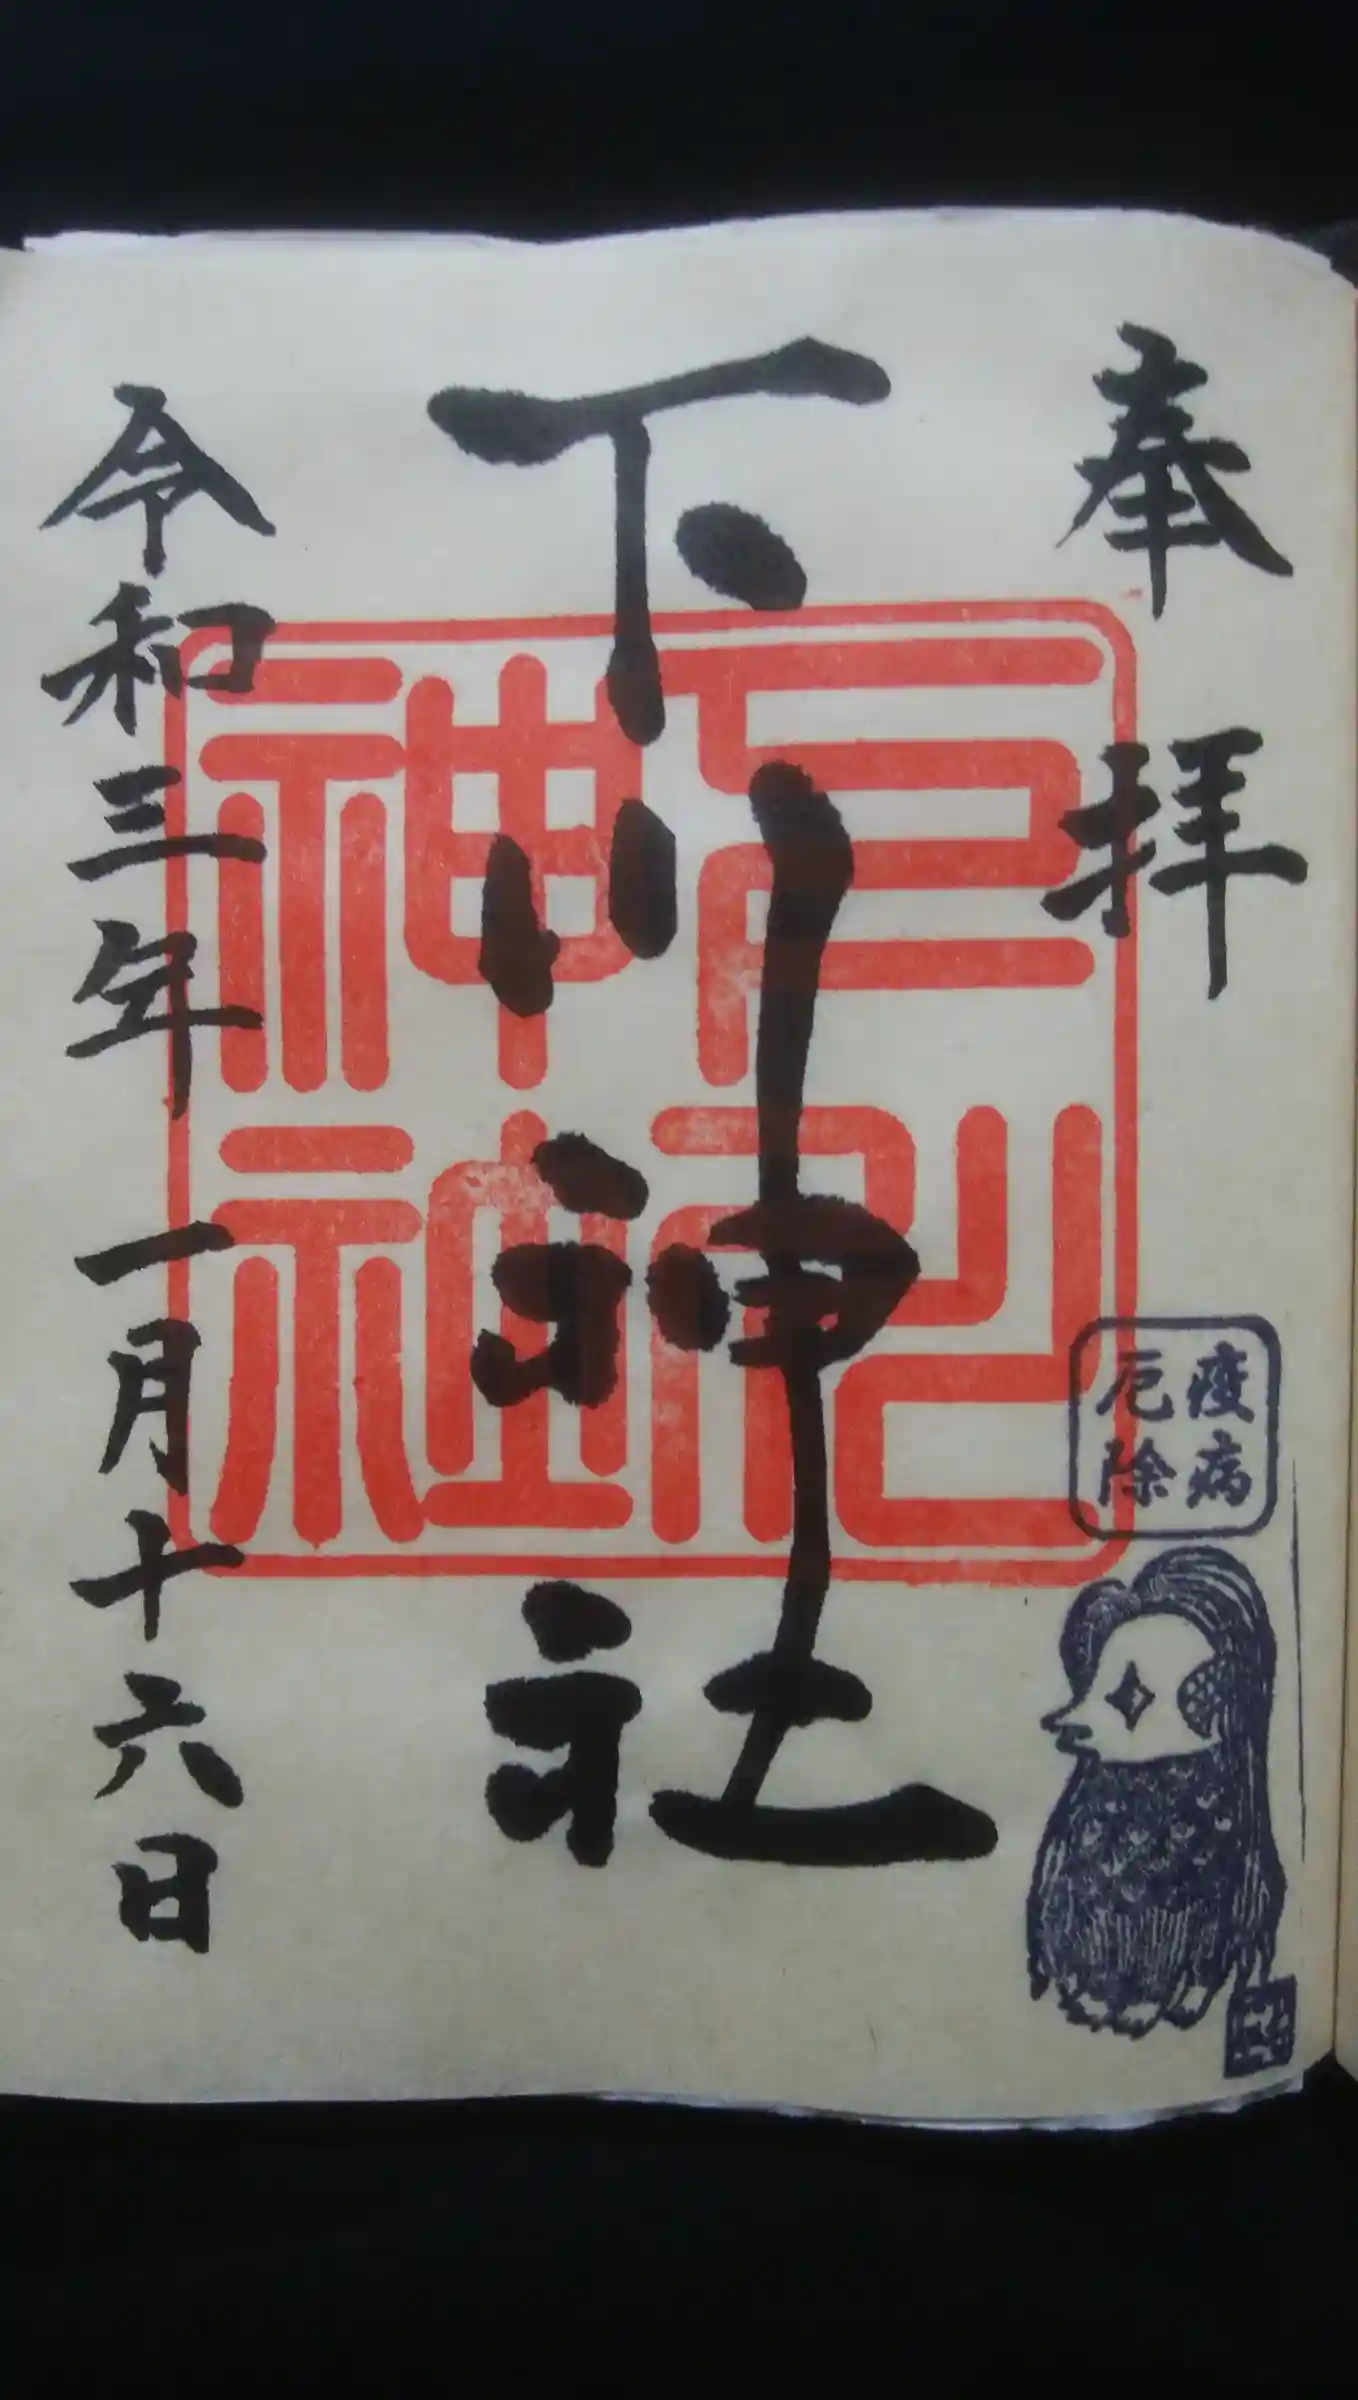 奉拝
疫病
厄除
下川神社
神社
令和三年一月十六日